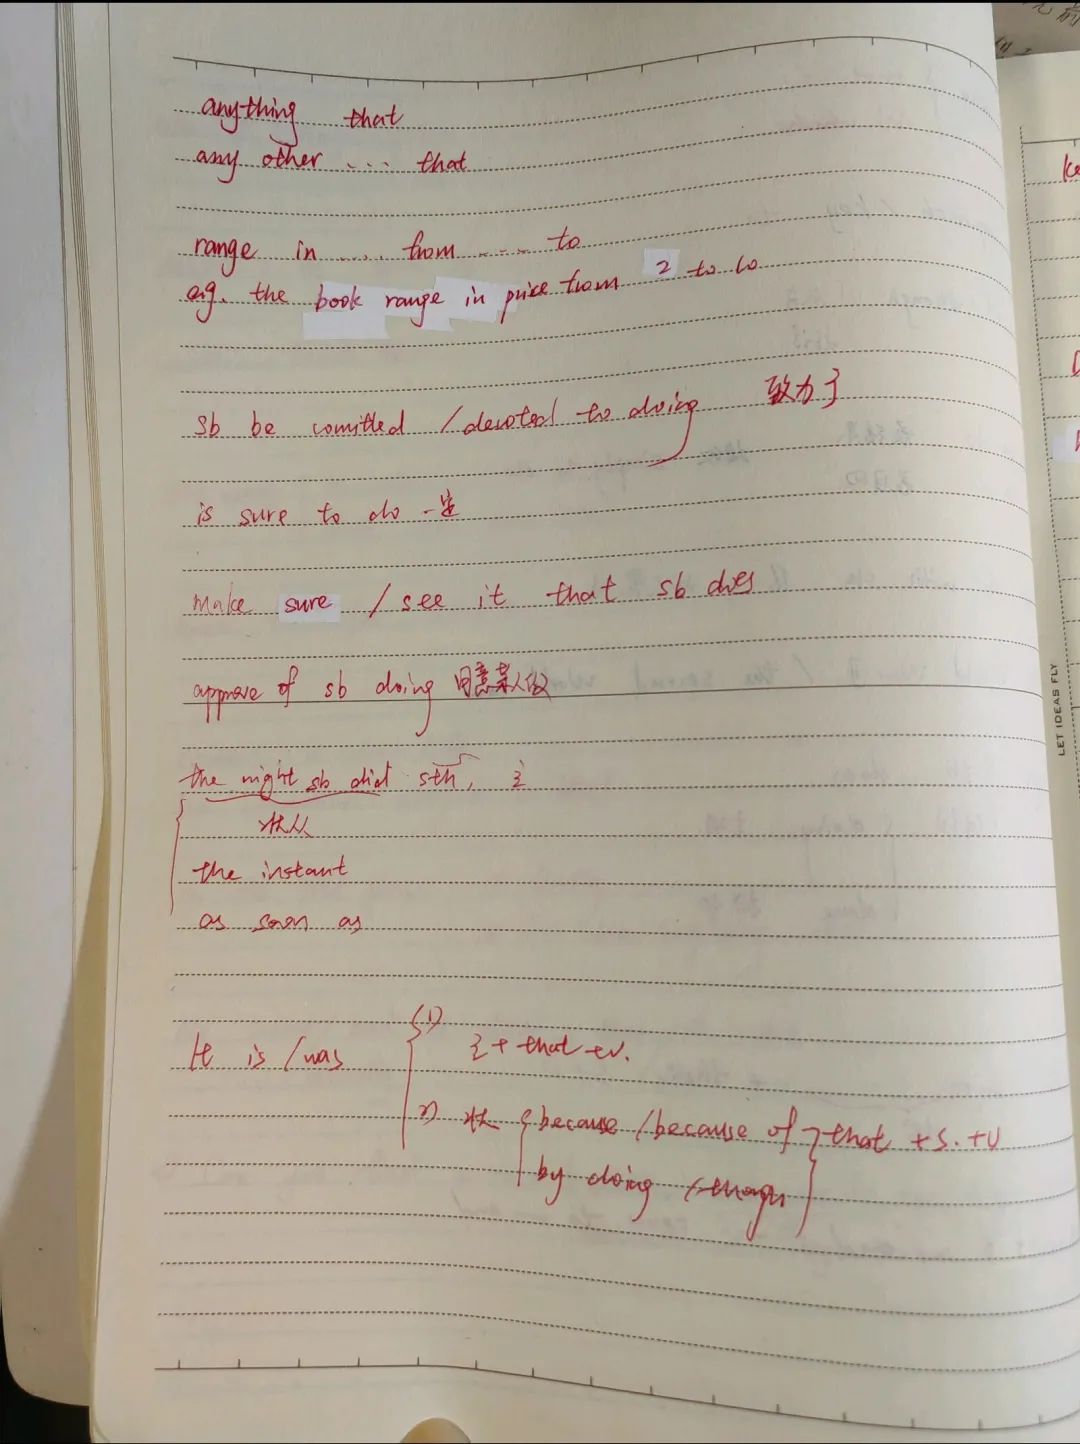 anything that
any other .... that
range in .... from .... to
e.g. the book range in price from 2 to 60
sb be comitted /devoted to doing 致力于
is sure to do 一定
make sure / see it that sb does
approve of sb doing 同意某人做
the night sb did sth, 主
状从
the instant
as soon as
It is / was
(1) 主 + that + v.
2) 状 { because / because of } that + S. + V
by doing / though
LET IDEAS FLY